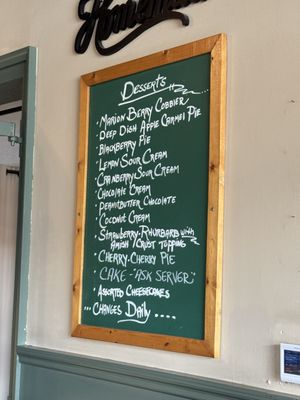 Homemade
Desserts
· Marion Berry Cobbier
· Deep Dish Apple Carmel Pie
· Blackberry Pie
· Lemon Sour Cream
· Cranberry Sour Cream
· Chocolate Cream
· Peanutbutter Chocolate
· Coconut Cream
· Strawberry-Rhurbarb with
Amish / Crust topping
· Cherry-Cherry Pie
· Cake - "Ask Server"
· Assorted Cheesecakes
... Changes Daily ....